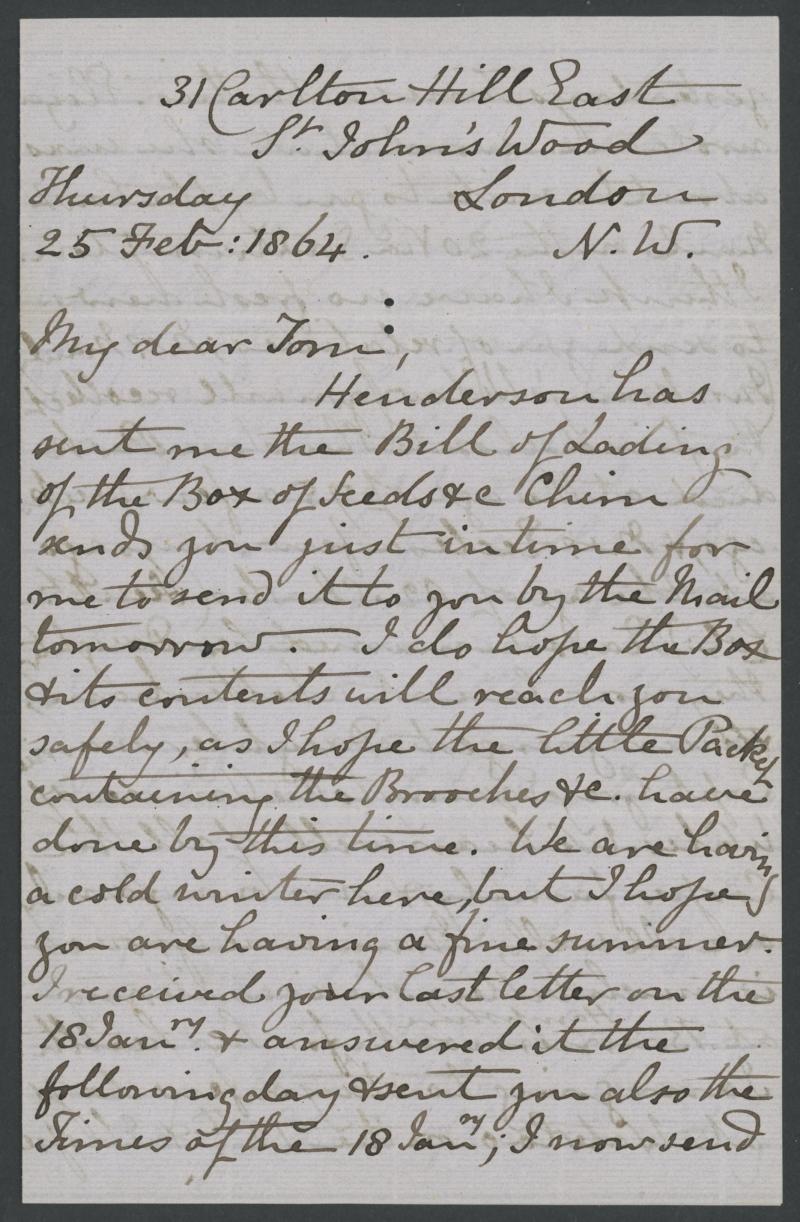 31 Carlton Hill East
St. John's Wood
Thursday London
25 Feb: 1864. N. W.
My dear Tom,
Henderson has
sent me the Bill of Lading
of the Box of Seeds &c
sends you just in time for
me to send it to you by the Mail
tomorrow. I do hope the Box
& its contents will reach you
safely, as I hope the little Packet
containing the Brooches &c. have
done by this time. We are having
a cold winter here, but I hope
you are having a fine summer.
I received your last letter on the
18 Janry. & answered it the
following day & sent you also the
Times of the 18 Janry; I now send